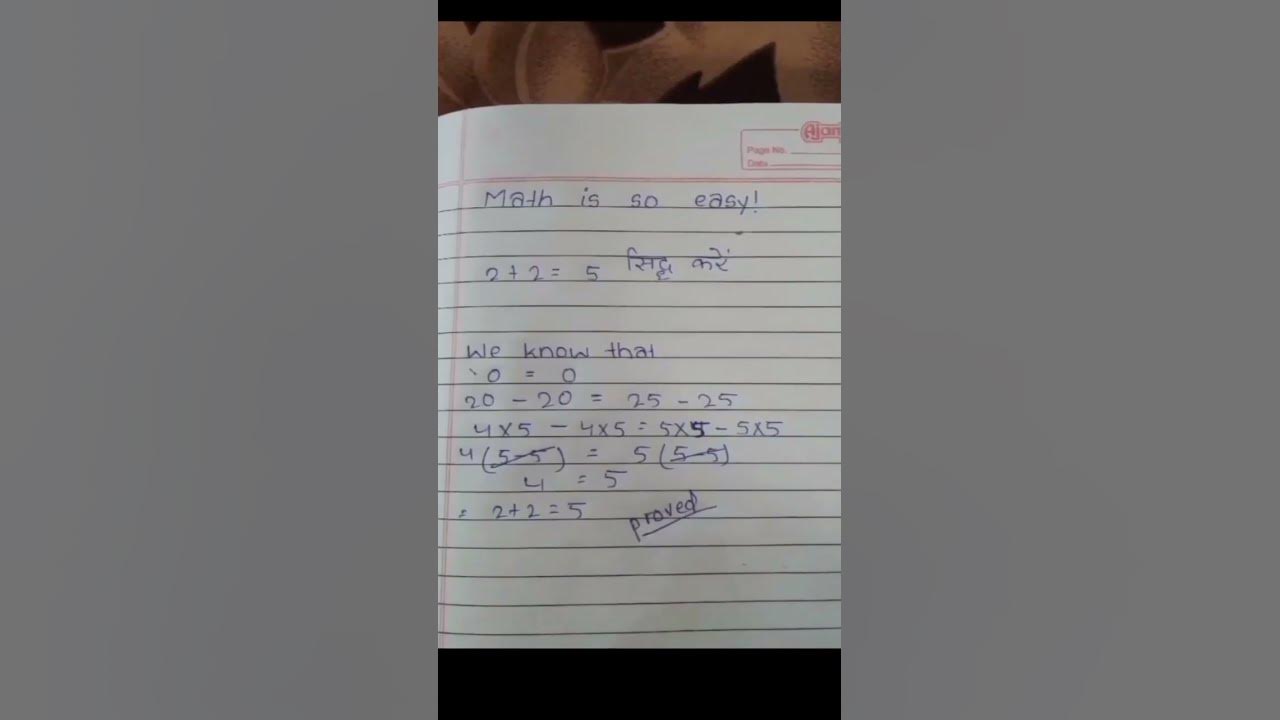 Ajan
Page No.
Date
Math is so easy!
2+2= 5 सिद्ध करें
We know that
0 = 0
20 - 20 = 25 - 25
4x5 - 4x5 = 5x5 - 5x5
4(5-5) = 5(5-5)
4 = 5
= 2+2=5 proved